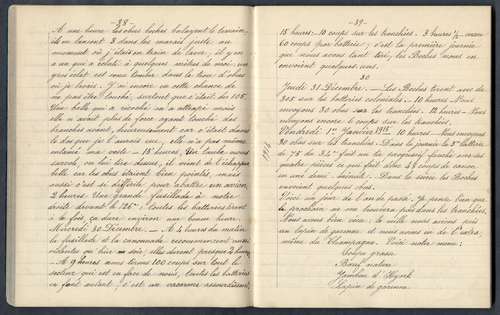 -38-
A une heure les obus boches balayent le terrain,
ils en lancent 3 dans les marais juste au
moment où j'étais en train de laver, il y en
a un qui a éclaté à quelques mètres de moi; un
gros éclat est venu tomber dans le trou d'obus
où je lavais. J'ai encore eu cette chance de
ne pas être touché, surtout que c'était du 105.
Une balle qui a ricoché m'a attrapé mais
elle n'avait plus de force ayant touché des
branches avant, heureusement car c'était dans
le dos que je l'aurais eue, elle n'a pas même
entamé ma veste. 18 heures. Un taube nous
survole, on lui tire dessus, il vient de l'échapper
belle car les obus étaient bien pointés, mais
aussi c'est si difficile pour abattre un avion.
2 heures. Une grande fusillade à notre
droit devant le 125e. Toutes les batteries tirent
à la fois, ça dure environ une bonne heure.
Mercredi 30 Décembre. - A 4 heures du matin
la fusillade et la canonnade recommencent
violente ou hier soir, elles durent presque 2 heures.
- A 9 heures nous tirons 100 coups sur tout le
secteur qui est en face de nous, toutes les batteries
en font autant, c'est un vacarme assourdissant,
-39-
15 heures: 10 coups sur les tranchées. 3 heures ½
60 coups par batterie; c'est la première journée
que nous avons tant tiré, les Boches nous en
envoient quelques uns.
30
Jeudi 31 Décembre. - Les Boches tirent avec du
305 sur les batteries voisines. - 10 heures. Nous
envoyons 30 obus sur les tranchées. 14 heures - Nous
envoyons encore 6 coups sur les tranchées.
1915
Vendredi 1er Janvier 1915 - 10 heures. - Nous envoyons
30 obus sur les tranchées. Dans la journée la 5e batterie
de 75 du 34e fait un tir progressif fauché avec ses
quatre pièces ce qui fait plus de coups de canon
en une demi-minute. Dans la soirée les Boches
envoient quelques obus.
Voici un jour de l'an de passé, je pense bien que
le prochain on ne se trouvera pas dans les tranchées.
Nous avons bien vécu: le midi nous avions pris
un lapin de garenne et nous avons eu de l'extra,
même du Champagne. Voici notre menu:
Soupe grasse
Bœuf nature
Jambon d'York
Lapin de garenne